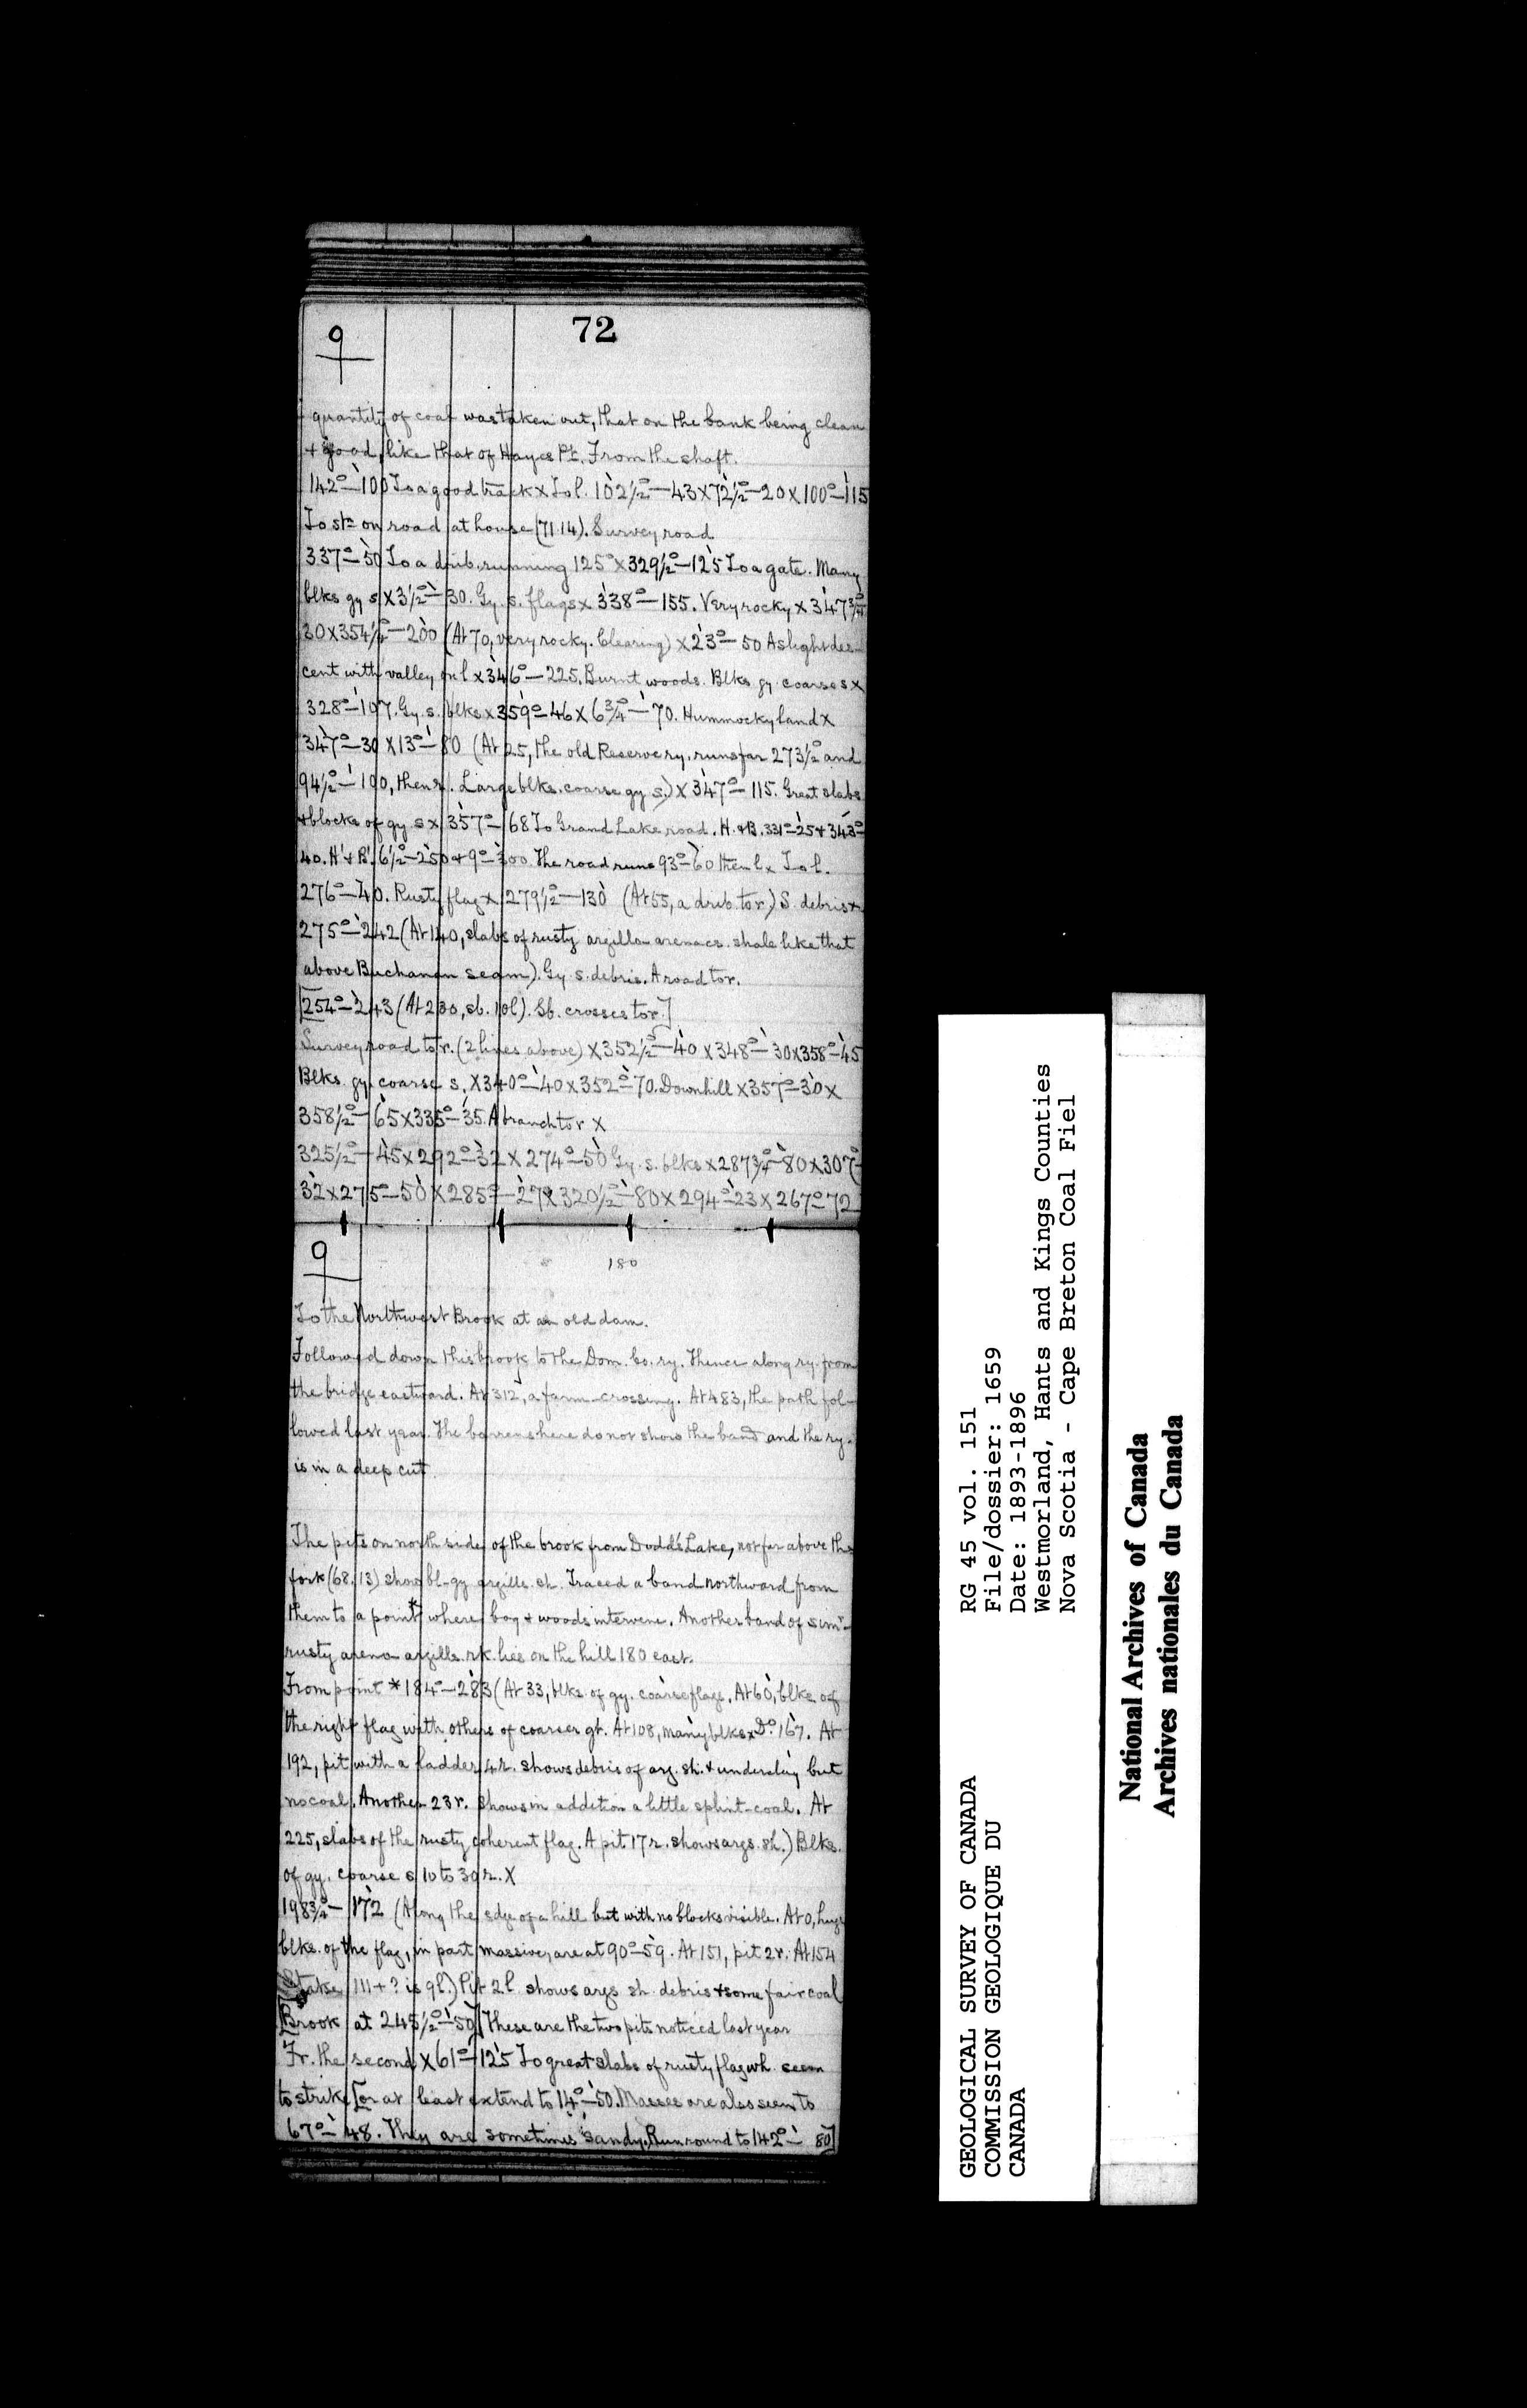 72
9
quantity of coal was taken out, that on the bank being clean
+ good, like that of Hayes Pt. From the shaft.
142°–100 To a good track x To l. 102½°–43 x 72½°–20 x 100°–115
To stn on road at house (71.14). Survey road
337°–50 To a drib. running 125° x 329½°–125 To a gate. Many
blks gy s x 3½°–30. Gy. s. flags x 338°–155. Very rocky x 347¾°
30 x 354½°–200 (At 70, very rocky. Clearing) x 23°–50 A slight des-
cent with valley on l x 346°–225. Burnt woods. Blks gy. coarse s x
328°–107. Gy. s. blks x 359°–46 x 6¾°–70. Hummocky land x
347°–30 x 13°–80 (At 25, the old Reserve ry. runs far 273½° and
94½°–100, then r. Large blks. coarse gy s.) x 347°–115. Great slabs
+ blocks of gy s x 357°–68 To Grand Lake road. H. + B. 331°–25 + 343°–
40. H' + B'. 6½°–250 + 9°–300. The road runs 93°–60 then l x To l.
276°–40. Rusty flag x 279½°–130 (At 55, a drib. to r.) S. debris x
275°–242 (At 140, slabs of rusty argillo-arenacs. shale like that
above Buchanan seam). Gy s. debris. A road to r.
[254°–243 (At 230, sb. 10 l). Sb. crosses to r.]
Survey road to r. (2 lines above) x 352½°–40 x 348°–30 x 358°–45
Blks. gy. coarse s. x 340°–40 x 352°–70. Downhill x 357°–30 x
358½°–65 x 335°–35. A branch to r x
325½°–45 x 292°–32 x 274°–50 Gy. s. blks x 287¾°–80 x 307°–
32 x 275°–50 x 285°–27 x 320½°–80 x 294°–23 x 267°–72
9
180
To the Northwest Brook at an old dam.
Followed down this brook to the Dom. Co. ry. Thence along ry. from
the bridge eastward. At 312, a farm-crossing. At 483, the path fol-
lowed last year. The barrens here do not show the band and the ry.
is in a deep cut.
The pits on north side of the brook from Dodd's Lake, not far above the
fork (68.13) show bl-gy argills. sh. Traced a band northward from
them to a point* where bog + woods intervene. Another band of simr
rusty areno argills. rk. lies on the hill 180 east.
From point * 184°–283 (At 33, blks. of gy. coarse flags. At 60, blks. of
the right flag with others of coarser gt. At 108, many blks x Do. 167. At
192, pit with a ladder 42. shows debris of arg. sh. + underclay but
no coal. Another 23 r. shows in addition a little splint-coal. At
225, slabs of the rusty coherent flag. A pit 17 r. shows args. sh.) Blks.
of gy. coarse s 10 to 30 r. x
198¾°–172 (Along the edge of a hill but with no blocks visible. At 0, huge
blks. of the flag, in part massive, are at 90°–59. At 151, pit 2 r. At 154
Stake 111 + ? is 9 l.) Pit 2 l. shows args sh. debris + some fair coal
[Brook at 245½°–50] These are the two pits noticed last year
Fr. the second x 61°–125 To great slabs of rusty flag wh. seem
to strike [or at least extend to 14°–50. Masses are also seen to
67°–48. They are sometimes sandy. Run round to 142°–80]
GEOLOGICAL SURVEY OF CANADA
COMMISSION GEOLOGIQUE DU
CANADA
RG 45 vol. 151
File/dossier: 1659
Date: 1893-1896
Westmorland, Hants and Kings Counties
Nova Scotia - Cape Breton Coal Fiel
National Archives of Canada
Archives nationales du Canada